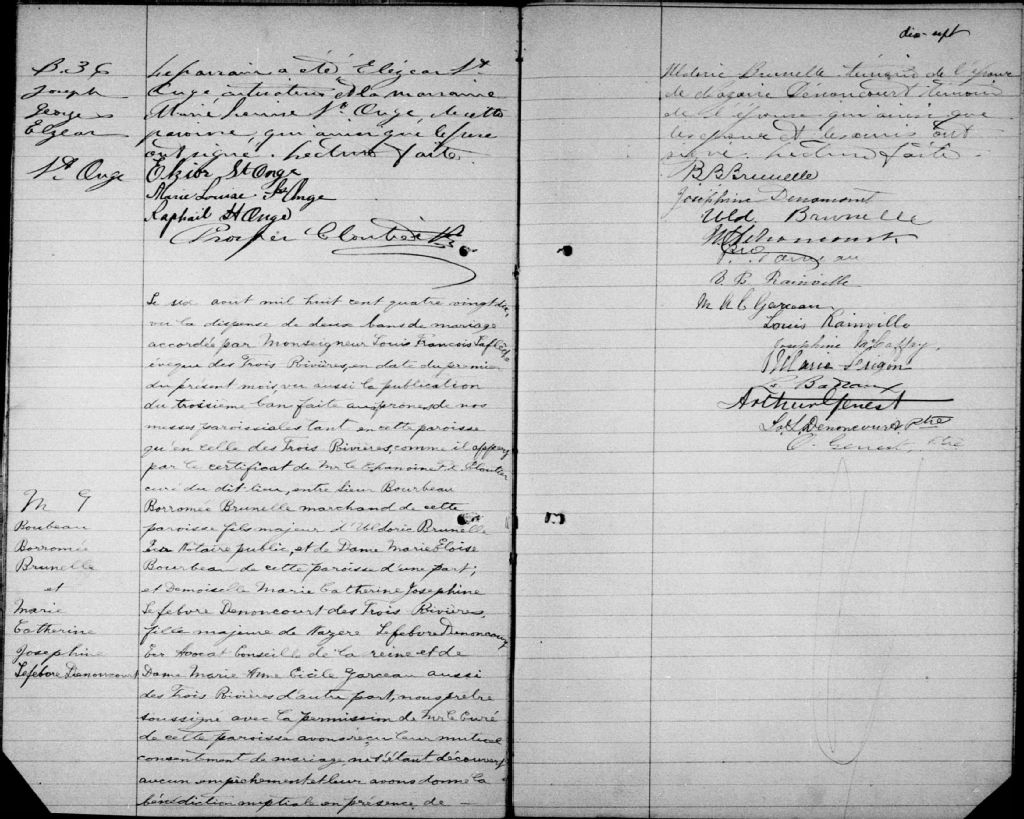 B. 36
Joseph
George
Elzear
St. Onge
Le parrain a été Elzéar St.
Onge instituteur et la marraine
Marie Louise St. Onge, de cette
paroisse, qui ainsi que le père
ont signé. Lecture faite.
Elzéar St Onge
Marie Louise St Onge
Raphael St Onge
Prosper Cloutier Ptre
M 9
Bourbeau
Borromée
Brunelle
et
Marie
Catherine
Josephine
Lefebvre Denoncourt
Le six aout mil huit cent quatre vingt dix,
vu la dispense de deux bans de mariage
accordée par Monseigneur Louis François Laflèche
évèque des Trois Rivières, en date du premier
du présent mois, vu aussi la publication
du troisième ban faite au prône de nos
messes paroissiales tant en cette paroisse
qu'en celle des Trois Rivières, comme il appert
par le certificat de Mr le Chanoine Cloutier
curé du dit lieu, entre Sieur Bourbeau
Borromée Brunelle marchand de cette
paroisse fils majeur d'Uldoric Brunelle
Ecr Notaire public, et de Dame Marie Eloise
Bourbeau de cette paroisse d'une part;
et Demoiselle Marie Catherine Josephine
Lefebvre Denoncourt des Trois Rivières,
fille majeure de Nazere Lefebvre Denoncourt
Ecr Avocat Conseille de la reine et de
Dame Marie Anne Cicile Garceau aussi
des Trois Rivières d'autre part, nous prêtre
soussigné avec la permission de Mr le Curé
de cette paroisse avons reçu leur mutuel
consentement de mariage, ne s'étant découvert
aucun empêchement et leur avons donné la
bénédiction nuptiale en présence de
dix-sept
Uldoric Brunelle témoin de l'époux
de Nazaire Dénoncourt témoin
de l'épouse qui ainsi que
les époux et tout
signé. Lecture faite.
B B Brunelle
Joséphine Denoncourt
Uld. Brunelle
Denoncourt
V. B. Rainville
M A C Garceau
Louis Rainville
Josephine McCaffry,
Marie Frigon
Arthur Genest
Denoncourt Ptre
O. Genest, Ptre